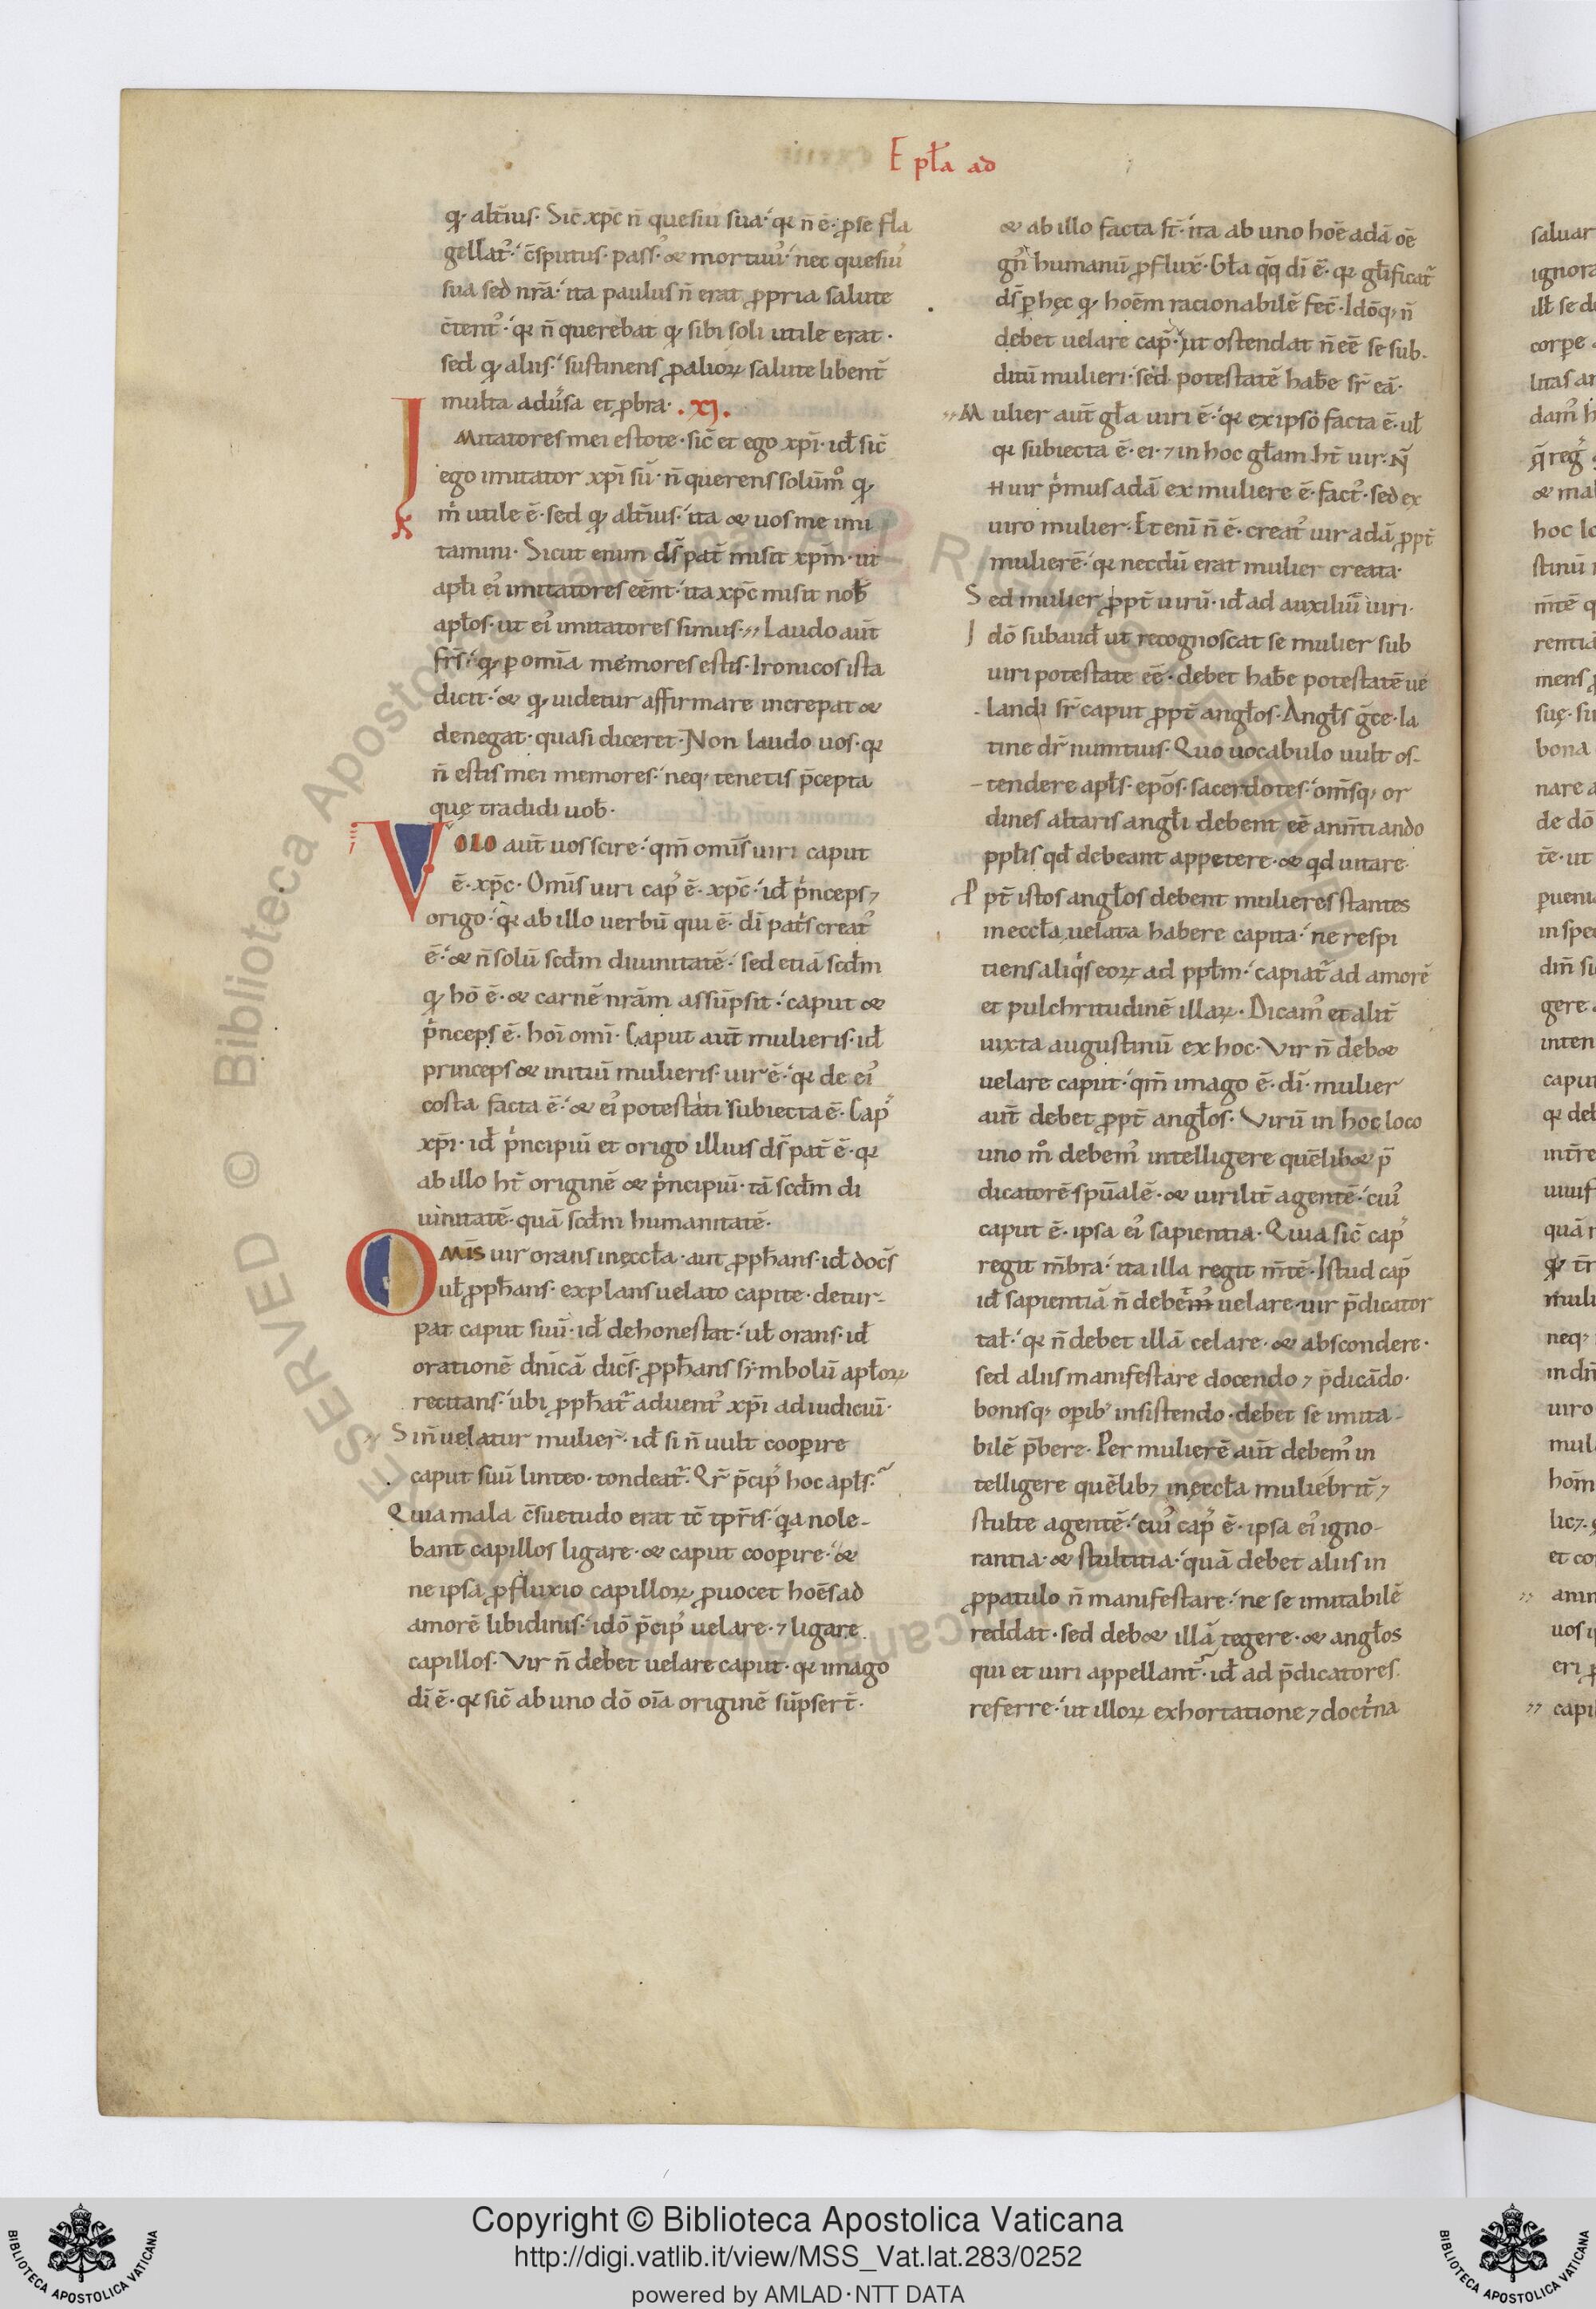 Epl̄a ad
qđ alt̄ius. Sic̄ xp̄c n̄ quesiuı̄ sua. qꝛ n̄ ē. ꝓ se fla
gellatꝰ. c̄sputus. passꝰ. & mortuuꝰ. nec quesiuı̄
sua sed nr̄ā. ita paulus n̄ erat ꝓpria salute
c̄tentꝰ. qꝛ n̄ querebat qđ sibi soli utile erat.
sed qđ aliis. sustinens ꝓ alioꝝ salute libent̄
multa adūsa et ꝓbra. .xj.
Imitatores mei estote. sic̄ et ego xp̄i. id̄ sic̄
ego imitator xp̄i sū. n̄ querens solūmo qđ
m̄ utile ē. sed qđ alt̄ius. ita & uos me imi
tamini. Sicut enim ds̄ pat̄ misit xp̄m. ut
apl̄i eiꝰ imitatores eēnt. ita xp̄c misit nob̄
apl̄os. ut eiꝰ imitatores simus. Laudo aūt
fr̄s. qđ ꝑ omīa memores estis. Ironicos ista
dicit. & qđ uidetur affirmare increpat &
denegat. quasi diceret. Non laudo uos. qꝛ
n̄ estis mei memores. neqꝫ tenetis p̄cepta
quę tradidi uob̄.
VOLO aūt uos scire. qm̄ omīs uiri caput
ē. xp̄c. Omīs uiri capꝰ ē. xp̄c. id̄ p̄nceps ⁊
origo. qꝛ ab illo uerbū qui ē. dī pat̄s creatꝰ
ē. & n̄ solū scđm diuinitatē. sed etiā scđm
qđ hō ē. & carnē nrām assūpsit. caput &
p̄nceps ē. hoı̄ omı̄. Caput aūt mulieris. id̄
princeps & initiū mulieris. uir ē. qꝛ de eiꝰ
costa facta ē. & eiꝰ potestati subiecta ē. Capꝰ
xp̄i. id̄ p̄ncipiū et origo illius ds̄ pat̄ ē. qꝛ
ab illo ht̄ originē & p̄ncipiū. tā scđm di
uinitatē. quā scđm humanitatē.
OMīS uir orans in ęccl̄a. aut ꝓph̄ans. id̄ doc̄s
ul̄ ꝓph̄ans. explans uelato capite. detur-
pat caput suū. id̄ dehonestat. ul̄ orans. id̄
orationē dn̄icā dic̄s. ꝓph̄ans simbolū apl̄oꝝ
recitans. ubi ꝓph̄at̄ aduentꝰ xp̄i ad iudiciū.
Si n̄ uelatur mulier. id̄ si n̄ uult cooꝑire
caput suū linteo. tondeat̄. Qr̄ p̄cipꝰ hoc apl̄s.
Quia mala c̄suetudo erat tc̄ tp̄ris. qa nole-
bant capillos ligare. & caput cooꝑire. &
ne ipsa ꝓfluxio capilloꝝ ꝓuocet hoēs ad
amorē libidinis. idō p̄cipꝰ uelare. ⁊ ligare
capillos. Vir n̄ debet uelare caput. qꝛ imago
dī ē. qꝛ sic̄ ab uno dō oīa originē sūpsert̄.
& ab illo facta st̄. ita ab uno hoē adā oē
gn̄ humanū ꝓflux̄. Gl̄a qq̄ dī ē. qꝛ gl̄ificat̄
ds̄ ꝑ hęc qđ hoēm racionabilē fec̄. Idōqꝫ n̄
debet uelare cap̄. ut ostendat n̄ eē se sub-
ditū mulieri. sed potestatē hab̄e sr̄ eā.
Mulier aūt gl̄a uiri ē. qꝛ ex ipso facta ē. ul̄
qꝛ subiecta ē. ei. ⁊ in hoc gl̄am ht̄ uir. N̄
N uir p̄mus adā ex muliere ē. factꝰ. sed ex
uiro mulier. Et enī n̄ ē. creatꝰ uir adā ꝓpt̄
mulierē. qꝛ necdū erat mulier creata.
Sed mulier ꝓpt̄ uirū. id̄ ad auxiliū uiri.
Idō subaud̄ ut recognoscat se mulier sub
uiri potestate eē. debet hab̄e potestatē ue
landi sr̄ caput ꝓpt̄ angl̄os. Angl̄s ḡce. la
tine dr̄ nuntius. Quo uocabulo uult os-
tendere apl̄s. epōs. sacerdotes. om̄sqꝫ or
dines altaris angl̄i debent eē anm̄tiando
ppl̄is qd̄ debeant appetere. & qđ uitare.
Ppt̄ istos angl̄os debent mulieres stantes
in eccl̄a uelata habere capita. ne respi
tiens aliqs̄ eoꝝ ad ppl̄m. capiat̄ ad amorē
et pulchritudinē illaꝝ. Dicamꝰ et alit̄
iuxta augustinū ex hoc. Vir n̄ deb&
uelare caput. qm̄ imago ē. dī. mulier
aūt debet ꝓpt̄ angl̄os. Virū in hoc loco
uno mo debemꝰ intelligere quēlib& p̄
dicatorē spūalē. & uirilit̄ agentē. cuiꝰ
caput ē. ipsa eiꝰ sapientia. Quia sic̄ capꝰ
regit m̄bra. ita illa regit m̄tē. Istud cap̄
id̄ sapientiā n̄ debemꝰ uelare uir p̄dicator
tal̄. qꝛ n̄ debet illā celare. & abscondere.
sed aliis manifestare docendo ⁊ p̄dicādo.
bonisqꝫ oꝑibꝰ insistendo. debet se imita-
bilē p̄bere. Per mulierē aūt debemꝰ in
telligere quēlibꝫ in ęccl̄a muliebrit̄ ⁊
stulte agentē. cuiꝰ capꝰ ē. ipsa eiꝰ igno-
rantia. & stultitia. quā debet aliis in
ꝓpatulo n̄ manifestare. ne se imitabilē
reddat. sed deb& illā tegere. & angl̄os
qui et uiri appellant̄. id̄ ad p̄dicatores
referre. ut illoꝝ exhortatione ⁊ doct̄na
Copyright © Biblioteca Apostolica Vaticana
http://digi.vatlib.it/view/MSS_Vat.lat.283/0252
powered by AMLAD·NTT DATA
BIBLIOTECA APOSTOLICA VATICANA
BIBLIOTECA APOSTOLICA VATICANA